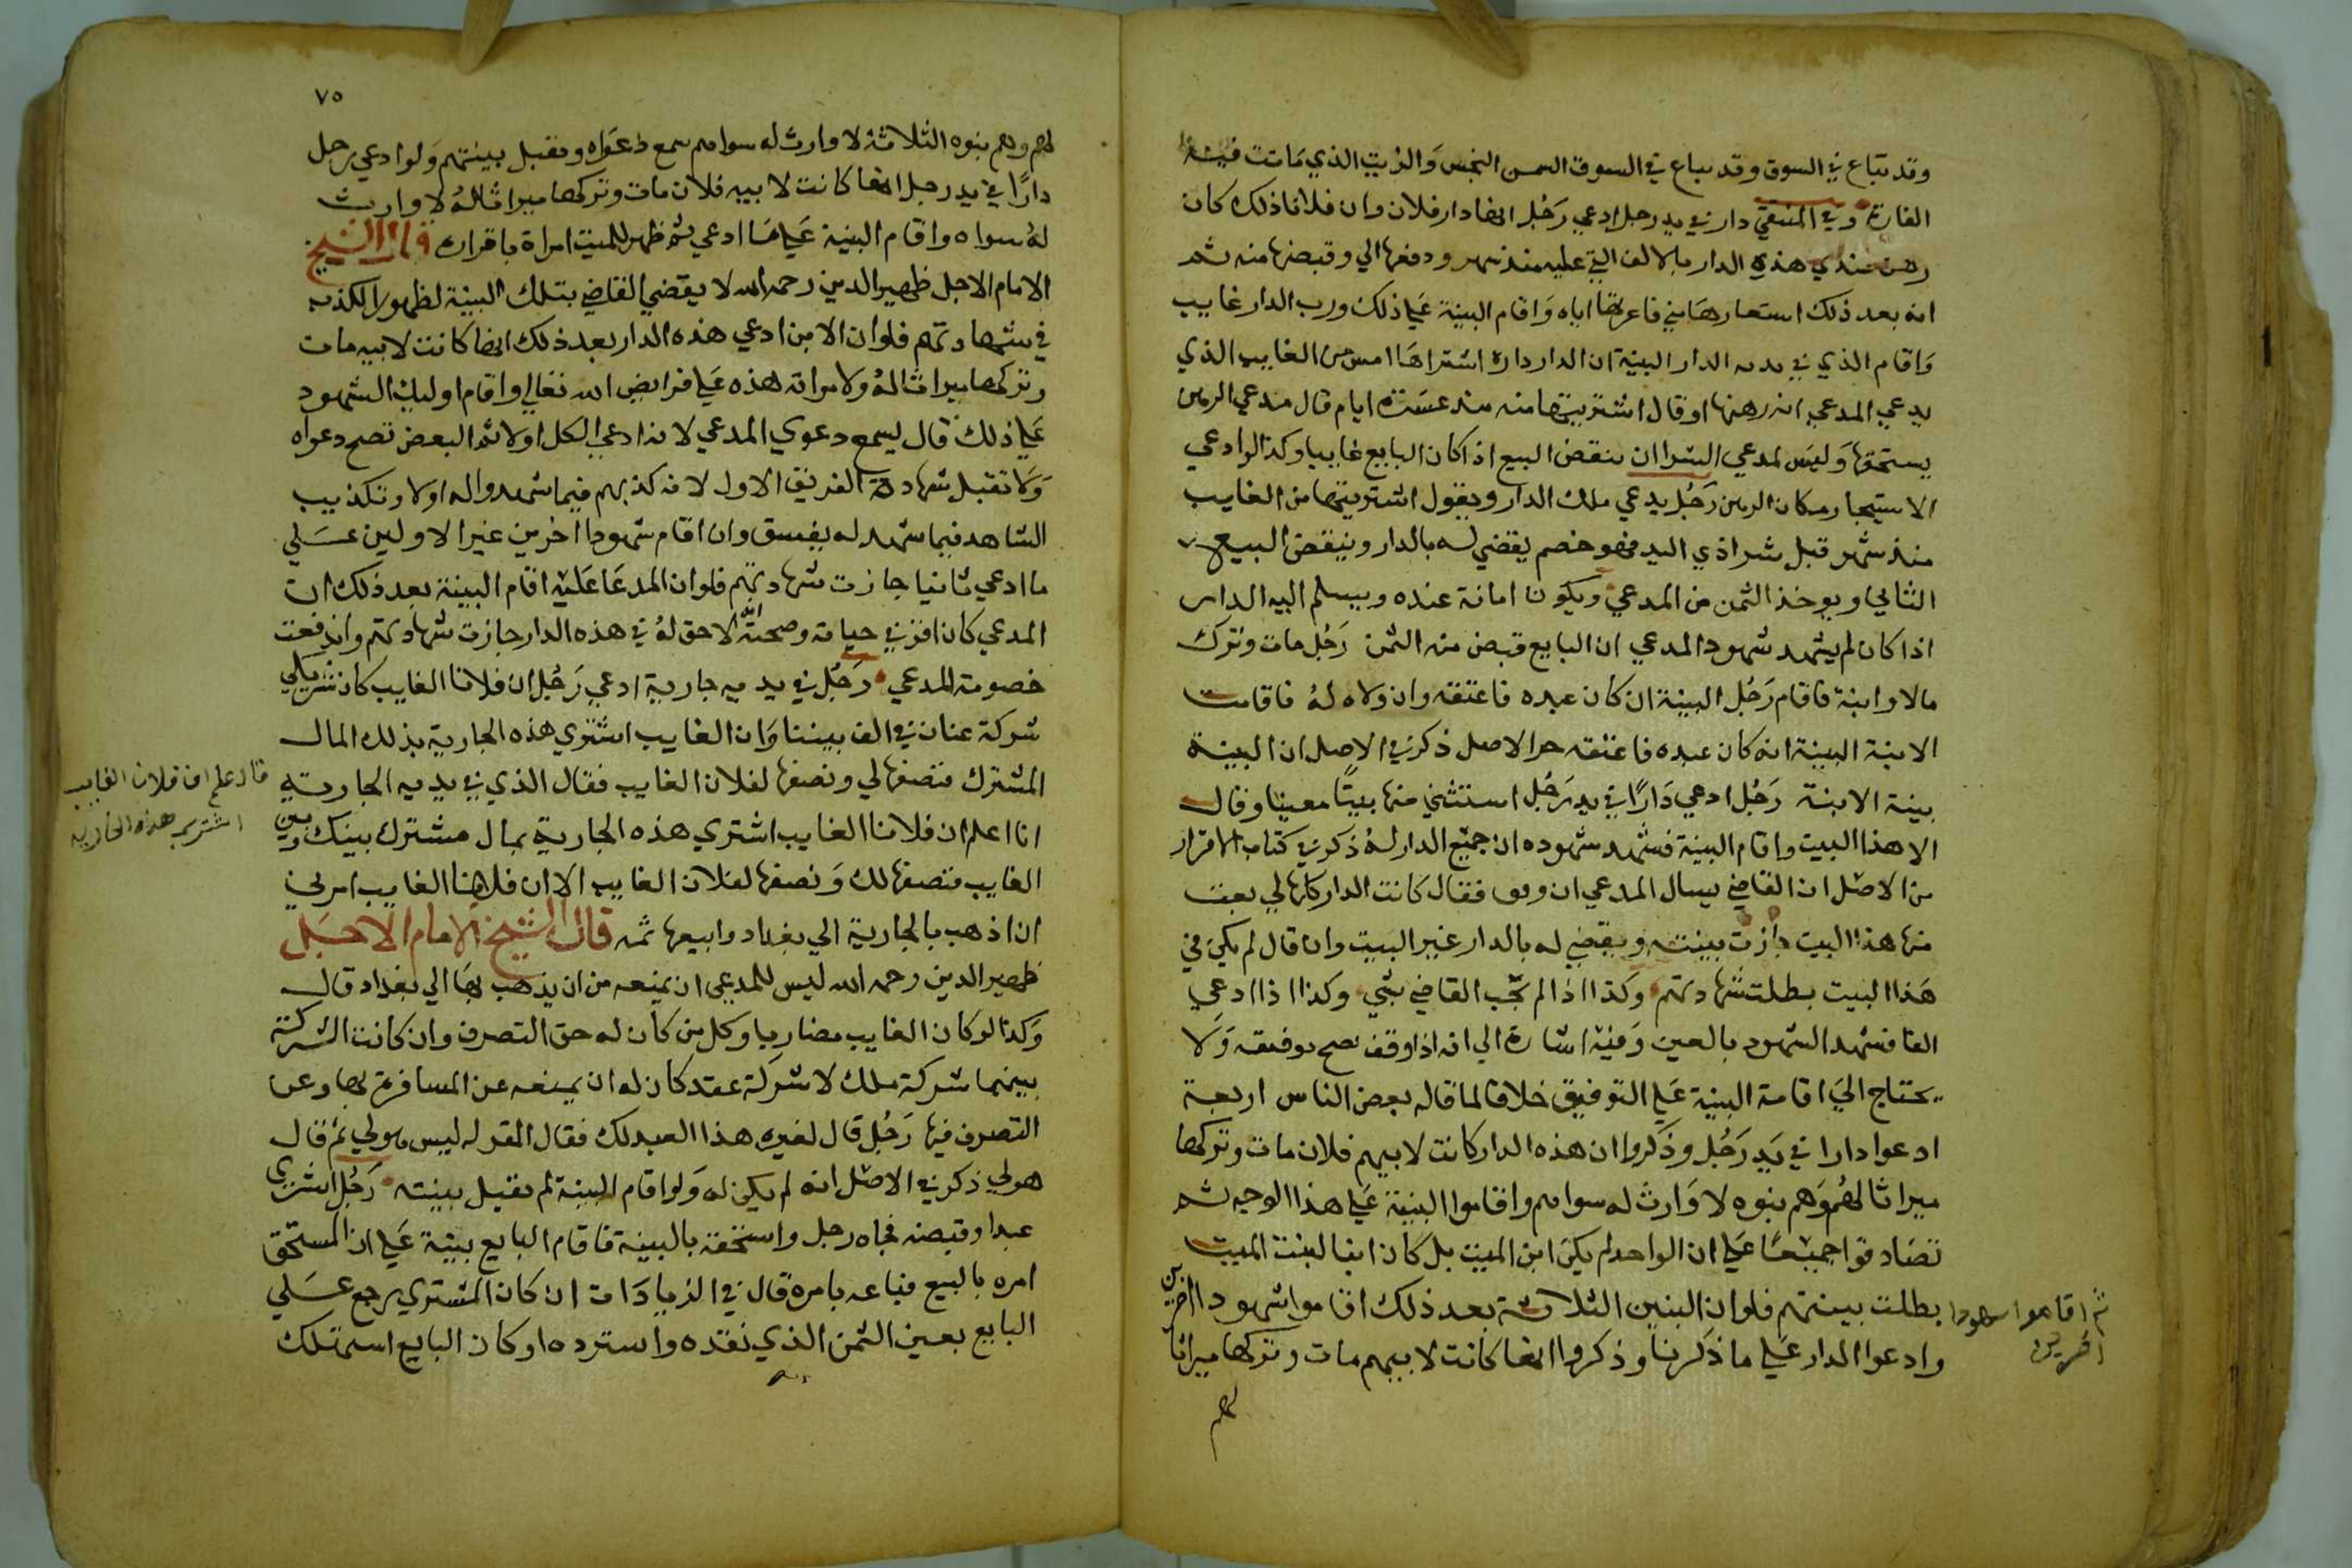 وقد تباع في السوق وقد يباع في السوق السمن النجس والزيت الذي ماتت فيه
الفارة وفي المنتقي دار في يد رجل ادعي رجل انها دار فلان وان فلانا ذلك كان
رهن عندي هذه الدار بالالف التي عليه منذ شهر ودفعها الي وقبضتها منه ثم
انه بعد ذلك استعارها مني فاعرتها اياه واقام البينة علي ذلك ورب الدار غايب
واقام الذي في يديه الدار البينة ان الدار داره اشتراها امس من الغايب الذي
يدعي المدعي انه رهنها او قال اشتريتها منه منذ عشرة ايام قال مدعي الرهن
يستحقها وليس لمدعي الشرا ان ينقض البيع اذا كان البايع غايبا وكذا لو ادعي
الاستيجار مكان الرهن رجل يدعي ملك الدار ويقول اشتريتها من الغايب
منذ شهر قبل شرا ذي اليد فهو خصم يقضي له بالدار وينقض البيع
الثاني ويوخذ الثمن من المدعي ويكون امانة عنده ويسلم اليه الدار
اذا كان لم يشهد شهود المدعي ان البايع قبض منه الثمن رجل مات وترك
مالا وابنة فاقام رجل البينة ان كان عبده فاعتقه وان ولاه له فاقامت
الابنة البينة انه كان عبده فاعتقه حر الاصل ذكر في الاصل ان البينة
بينة الابنة رجل ادعي دارا في يد رجل استثني منها بيتا معينا وقال
الا هذا البيت واقام البينة فشهد شهوده ان جميع الدار له ذكر في كتاب الاقرار
من الاصل ان القاضي يسال المدعي ان وفق فقال كانت الدار كلها لي بعت
منها هذا البيت جازت بينته ويقضي له بالدار غير البيت وان قال لم يكن في
هذا البيت بطلت شهادتهم وكذا اذا لم يجب القاضي بشي وكذا اذا ادعي
الفا فشهد الشهود بالفين وفيه اشارة الي انه اذا وفق يصح توفيقه ولا
يحتاج الي اقامة البينة علي التوفيق خلافا لما قاله بعض الناس اربعة
ادعوا دارا في يد رجل وذكروا ان هذه الدار كانت لابيهم فلان مات وتركها
ميراثا لهم وهم بنوه لا وارث له سواهم واقاموا البينة علي هذا الوجه ثم
تصادقوا جميعا علي ان الواحد لم يكن ابن الميت بل كان ابنا لبنت الميت
بطلت بينتهم فلو ان البنين الثلاثة بعد ذلك اقاموا شهودا اخرين
وادعوا الدار علي ما ذكرنا وذكروا انها كانت لابيهم مات وتركها ميراثا
لهم
ثم اقاموا شهودا
اخرين
٧٥
لهم وهم بنوه الثلاثة لا وارث له سواهم سمع دعواه وتقبل بينتهم ولو ادعي رجل
دارا في يد رجل انها كانت لابيه فلان مات وتركها ميراثا له لا وارث
له سواه واقام البينة علي ما ادعي ثم ظهر للميت امراة باقراره قال الشيخ
الامام الاجل ظهير الدين رحمه الله لا يقضي القاضي بتلك البينة لظهور الكذب
في شهادتهم فلو ان الابن ادعي هذه الدار بعد ذلك انها كانت لابيه مات
وتركها ميراثا له ولامراته هذه علي فرايض الله تعالي واقام اوليك الشهود
علي ذلك قال يسمع دعوي المدعي لانه ادعي الكل اولا ثم البعض تصح دعواه
ولا تقبل شهادة الفريق الاول لانه كذبهم فيما شهدوا له اولا وتكذيب
الشاهد فيما شهد له يفسق وان اقام شهودا اخرين غير الاولين علي
ما ادعي ثانيا جازت شهادتهم فلو ان المدعا عليه اقام البينة بعد ذلك ان
المدعي كان اقر في حياته وصحته انه لا حق له في هذه الدار جازت شهادتهم واندفعت
خصومة المدعي رجل في يديه جارية ادعي رجل ان فلانا الغايب كان شريكي
شركة عنان في الف بيننا وان الغايب اشتري هذه الجارية بذلك المال
المشترك فنصفها لي ونصفها لفلان الغايب فقال الذي في يديه الجارية
انا اعلم ان فلانا الغايب اشتري هذه الجارية بمال مشترك بينك وبين
الغايب فنصفها لك ونصفها لفلان الغايب الا ان فلانا الغايب امرني
ان اذهب بالجارية الي بغداد وابيعها ثمه قال الشيخ الامام الاجل
ظهير الدين رحمه الله ليس للمدعي ان يمنعه من ان يذهب بها الي بغداد قال
وكذا لو كان الغايب مضاربا وكل من كان له حق التصرف وان كانت الشركة
بينهما شركة ملك لا شركة عقد كان له ان يمنعه عن المسافرة بها وعن
التصرف فيها رجل قال لغيره هذا العبد لك فقال المقر له ليس هو لي ثم قال
هو لي ذكر في الاصل انه لم يكن له ولو اقام البينة لم تقبل بينته رجل اشتري
عبدا وقبضه فجاه رجل واستحقه بالبينة فاقام البايع بينة علي ان المستحق
امره بالبيع فباعه بامره قال في الزيادات ان كان المشتري يرجع علي
البايع بعين الثمن الذي نقده واسترده او كان البايع استهلك
قال اعلم ان فلان الغايب
اشتري هذه الجارية